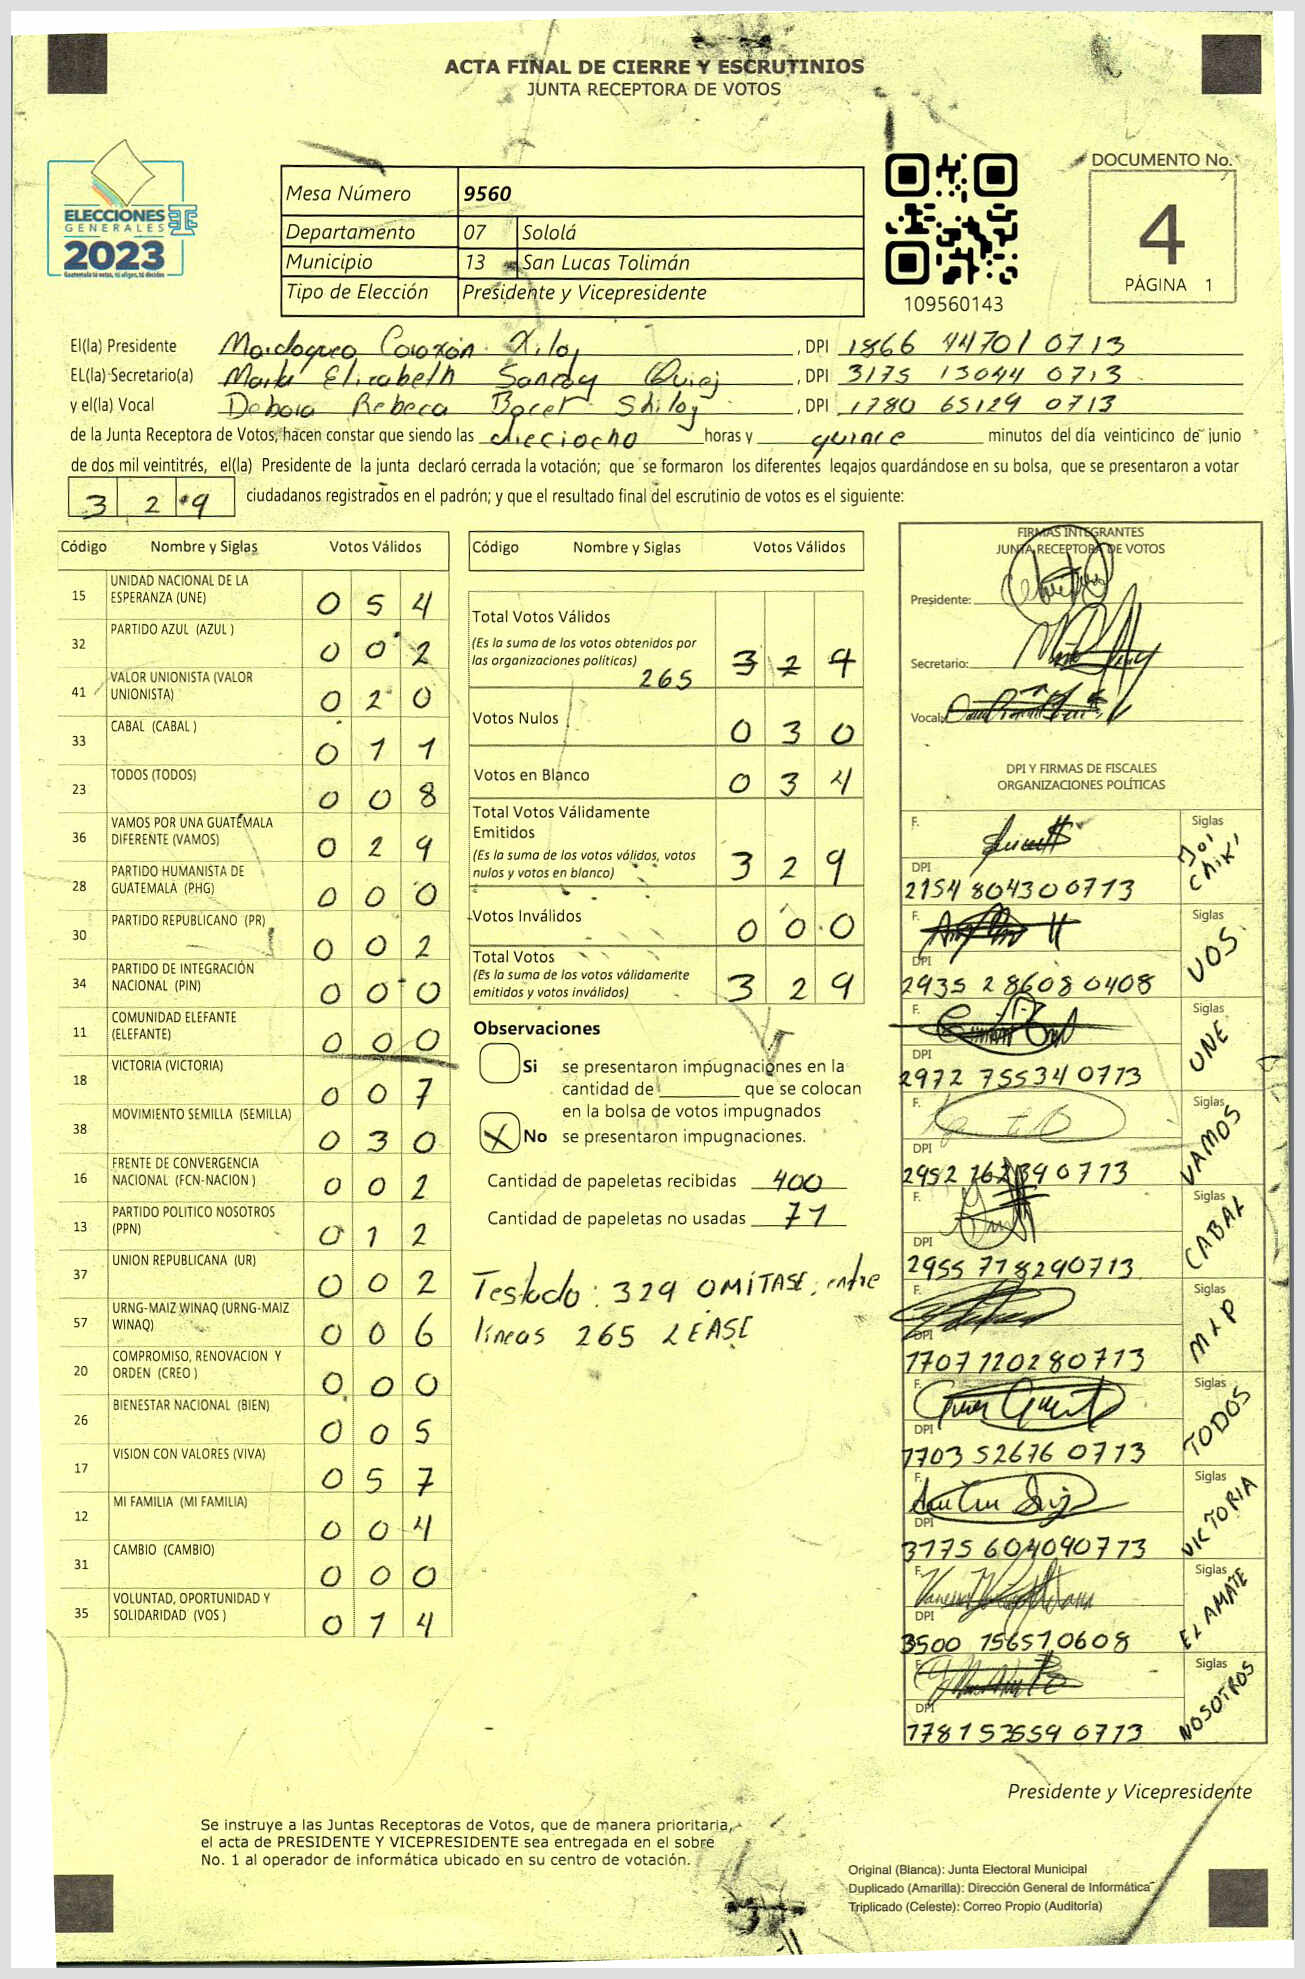 ACTA FINAL DE CIERRE Y ESCRUTINIOS
JUNTA RECEPTORA DE VOTOS
ELECCIONES
GENERALES
2023
Guatemala tú votas, tú eliges, tú decides
Mesa Número 9560
Departamento 07 Sololá
Municipio 13 San Lucas Tolimán
Tipo de Elección Presidente y Vicepresidente
109560143
DOCUMENTO No.
4
PÁGINA 1
El(la) Presidente Mardoqueo Cocoxón Xiloj , DPI 1866 44701 0713
EL(la) Secretario(a) Marta Elizabeth Sanray Quiej , DPI 3175 13044 0713
y el(la) Vocal Debora Rebeca Bocel Shiloj , DPI 1780 65129 0713
de la Junta Receptora de Votos, hacen constar que siendo las dieciocho horas y quince minutos del día veinticinco de junio
de dos mil veintitrés, el(la) Presidente de la junta declaró cerrada la votación; que se formaron los diferentes legajos guardándose en su bolsa, que se presentaron a votar
3 2 9 ciudadanos registrados en el padrón; y que el resultado final del escrutinio de votos es el siguiente:
Código Nombre y Siglas Votos Válidos
15 UNIDAD NACIONAL DE LA ESPERANZA (UNE) 0 5 4
32 PARTIDO AZUL (AZUL ) 0 0 2
41 VALOR UNIONISTA (VALOR UNIONISTA) 0 2 0
33 CABAL (CABAL ) 0 1 1
23 TODOS (TODOS) 0 0 8
36 VAMOS POR UNA GUATEMALA DIFERENTE (VAMOS) 0 2 9
28 PARTIDO HUMANISTA DE GUATEMALA (PHG) 0 0 0
30 PARTIDO REPUBLICANO (PR) 0 0 2
34 PARTIDO DE INTEGRACIÓN NACIONAL (PIN) 0 0 0
11 COMUNIDAD ELEFANTE (ELEFANTE) 0 0 0
18 VICTORIA (VICTORIA) 0 0 7
38 MOVIMIENTO SEMILLA (SEMILLA) 0 3 0
16 FRENTE DE CONVERGENCIA NACIONAL (FCN-NACION ) 0 0 2
13 PARTIDO POLITICO NOSOTROS (PPN) 0 1 2
37 UNION REPUBLICANA (UR) 0 0 2
57 URNG-MAIZ WINAQ (URNG-MAIZ WINAQ) 0 0 6
20 COMPROMISO, RENOVACION Y ORDEN (CREO ) 0 0 0
26 BIENESTAR NACIONAL (BIEN) 0 0 5
17 VISION CON VALORES (VIVA) 0 5 7
12 MI FAMILIA (MI FAMILIA) 0 0 4
31 CAMBIO (CAMBIO) 0 0 0
35 VOLUNTAD, OPORTUNIDAD Y SOLIDARIDAD (VOS ) 0 1 4
Código Nombre y Siglas Votos Válidos
Total Votos Válidos
(Es la suma de los votos obtenidos por
las organizaciones políticas) 3 2 9
265
Votos Nulos 0 3 0
Votos en Blanco 0 3 4
Total Votos Válidamente
Emitidos
(Es la suma de los votos válidos, votos
nulos y votos en blanco) 3 2 9
Votos Inválidos 0 0 0
Total Votos
(Es la suma de los votos válidamente
emitidos y votos inválidos) 3 2 9
Observaciones
Si se presentaron impugnaciones en la
cantidad de ________ que se colocan
en la bolsa de votos impugnados
X No se presentaron impugnaciones.
Cantidad de papeletas recibidas 400
Cantidad de papeletas no usadas 71
Testado: 329 OMITASE, entre
líneas 265 LEASE
FIRMAS INTEGRANTES
JUNTA RECEPTORA DE VOTOS
Presidente:
Secretario:
Vocal:
DPI Y FIRMAS DE FISCALES
ORGANIZACIONES POLÍTICAS
F. Siglas
DPI
2154 80430 0713
F. Siglas VOS
DPI
2935 28608 0408
F. Siglas UNE
DPI
2972 75534 0713
F. Siglas VAMOS
DPI
2952 76239 0713
F. Siglas CABAL
DPI
2955 77829 0713
F. Siglas MLP
DPI
1707 12028 0713
F. Siglas TODOS
DPI
1703 52676 0713
F. Siglas VICTORIA
DPI
3175 60409 0713
F. Siglas
DPI
3500 15657 0608
F. Siglas NOSOTROS
DPI
1781 53559 0713
Presidente y Vicepresidente
Se instruye a las Juntas Receptoras de Votos, que de manera prioritaria,
el acta de PRESIDENTE Y VICEPRESIDENTE sea entregada en el sobre
No. 1 al operador de informática ubicado en su centro de votación.
Original (Blanca): Junta Electoral Municipal
Duplicado (Amarilla): Dirección General de Informática
Triplicado (Celeste): Correo Propio (Auditoría)